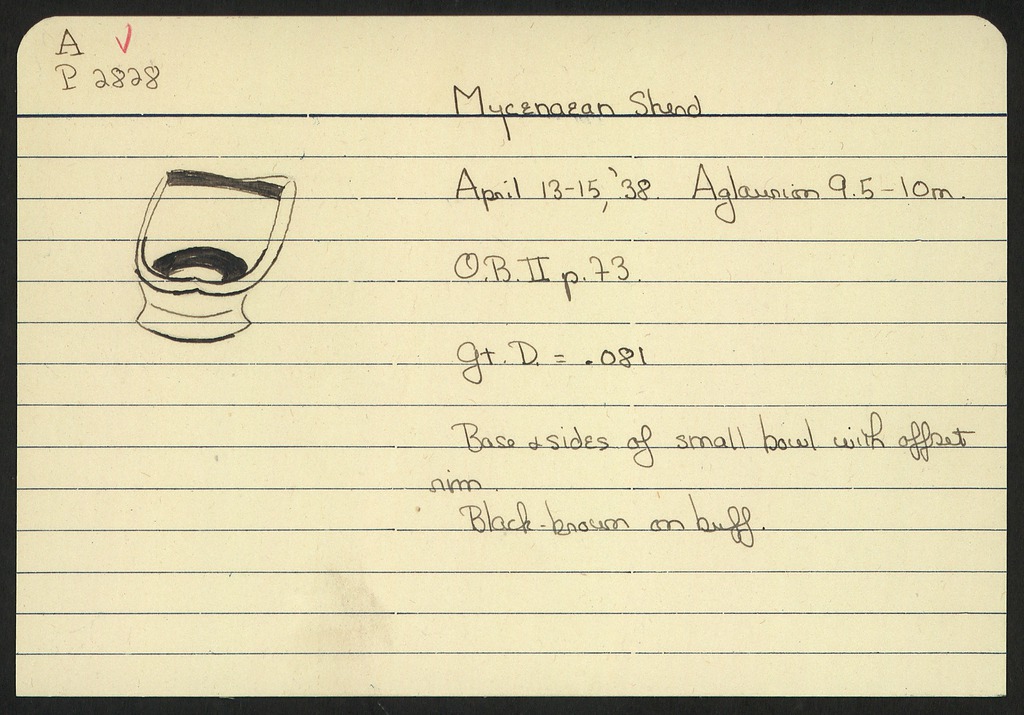 A ✓
P 2828
Mycenaean Sherd
April 13-15, '38. Aglaurion 9.5-10m.
O.B. II p. 73.
gt. D. = .081
Base & sides of small bowl with offset
rim.
Black-brown on buff.